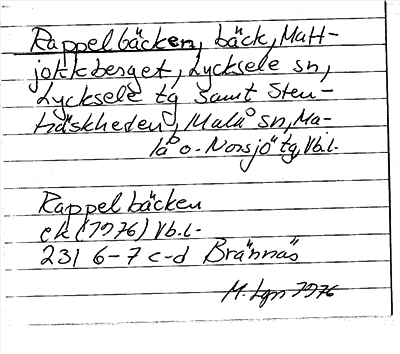 Rappelbäcken, bäck, Matt-
jokkberget, Lycksele sn,
Lycksele tg samt Sten-
träskheden, Malå sn, Ma-
lå o. Norsjö tg, Vb.l.
Rappelbäcken
ek (1976) Vb.l.
231 6-7 c-d Brännäs
M. Lgn 1976